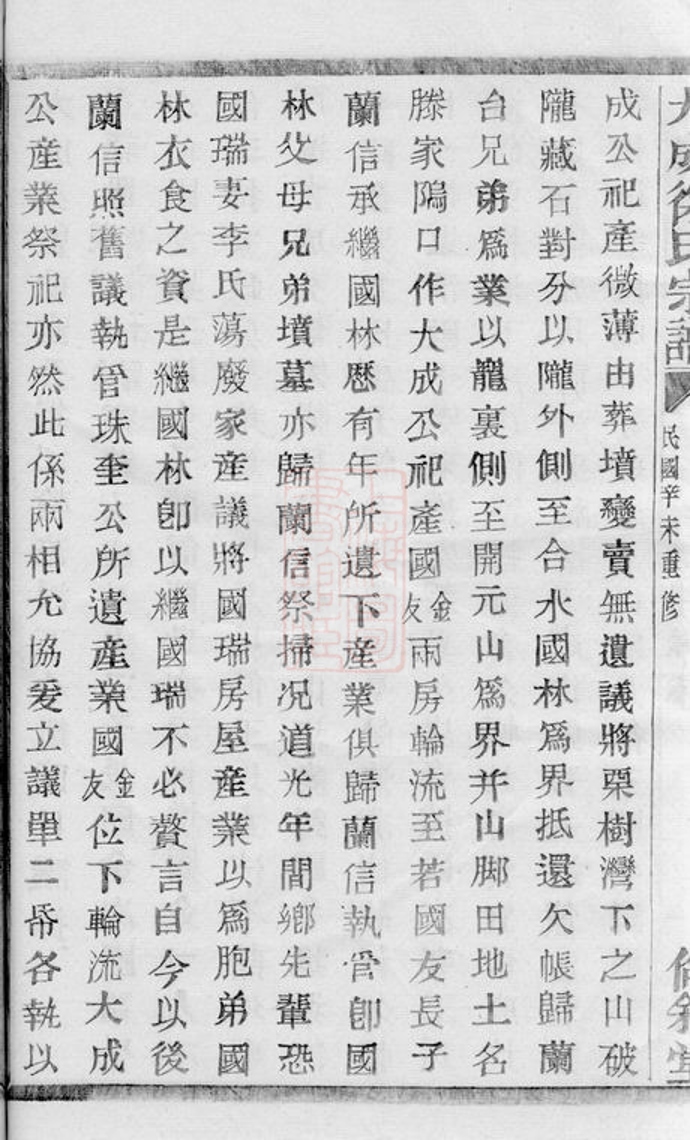 大成徐氏宗譜
民國辛未重修
成公祀產微薄由葬墳變賣無遺議將栗樹灣下之山破
隴藏石對分以隴外側至合水國林爲界抵還欠帳歸蘭
台兄弟爲業以隴裏側至開元山爲界并山脚田地土名
滕家隖口作大成公祀產國金友兩房輪流至若國友長子
蘭信承繼國林歷有年所遺下產業俱歸蘭信執管卽國
林父母兄弟墳墓亦歸蘭信祭掃况道光年間鄉先輩恐
國瑞妻李氏蕩廢家産議將國瑞房屋産業以爲胞弟國
林衣食之資是繼國林卽以繼國瑞不必贅言自今以後
蘭信照舊議執管珠奎公所遺産業國金友位下輪流大成
公産業祭祀亦然此係兩相允協爰立議單二帋各執以